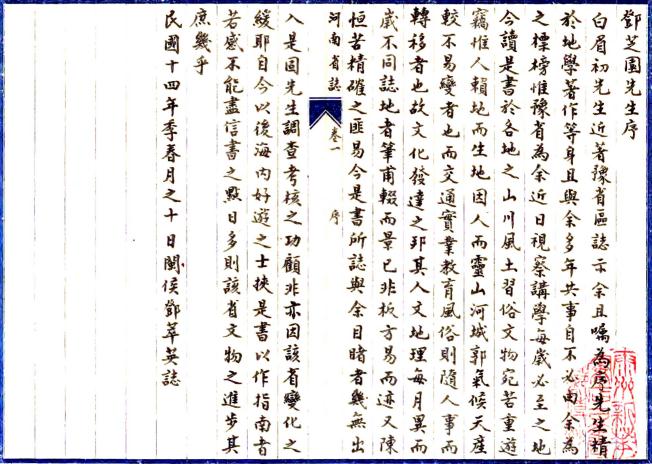 鄧芝園先生序
白眉初先生近著豫省區誌示余且囑為序先生精
於地學著作等身且與余多年共事自不必由余為
之標榜惟豫省為余近日視察講學每歲必至之地
今讀是書於各地之山川風土習俗文物宛若重遊
竊惟人賴地而生地因人而靈山河城郭氣候天產
較不易變者也而交通實業教育風俗則隨人事而
轉移者也故文化發達之邦其人文地理每月異而
歲不同誌地者筆甫輟而景已非板方易而迹又陳
恒苦精確之匪易今是書所誌與余目睹者幾無出
河南省誌 卷一 序
入是固先生調查考核之功顧非亦因該省變化之
緩耶自今以後海內好遊之士挾是書以作指南者
若感不能盡信書之點日多則該省文物之進步其
庶幾乎
民國十四年季春月之十日閩侯鄧萃英誌